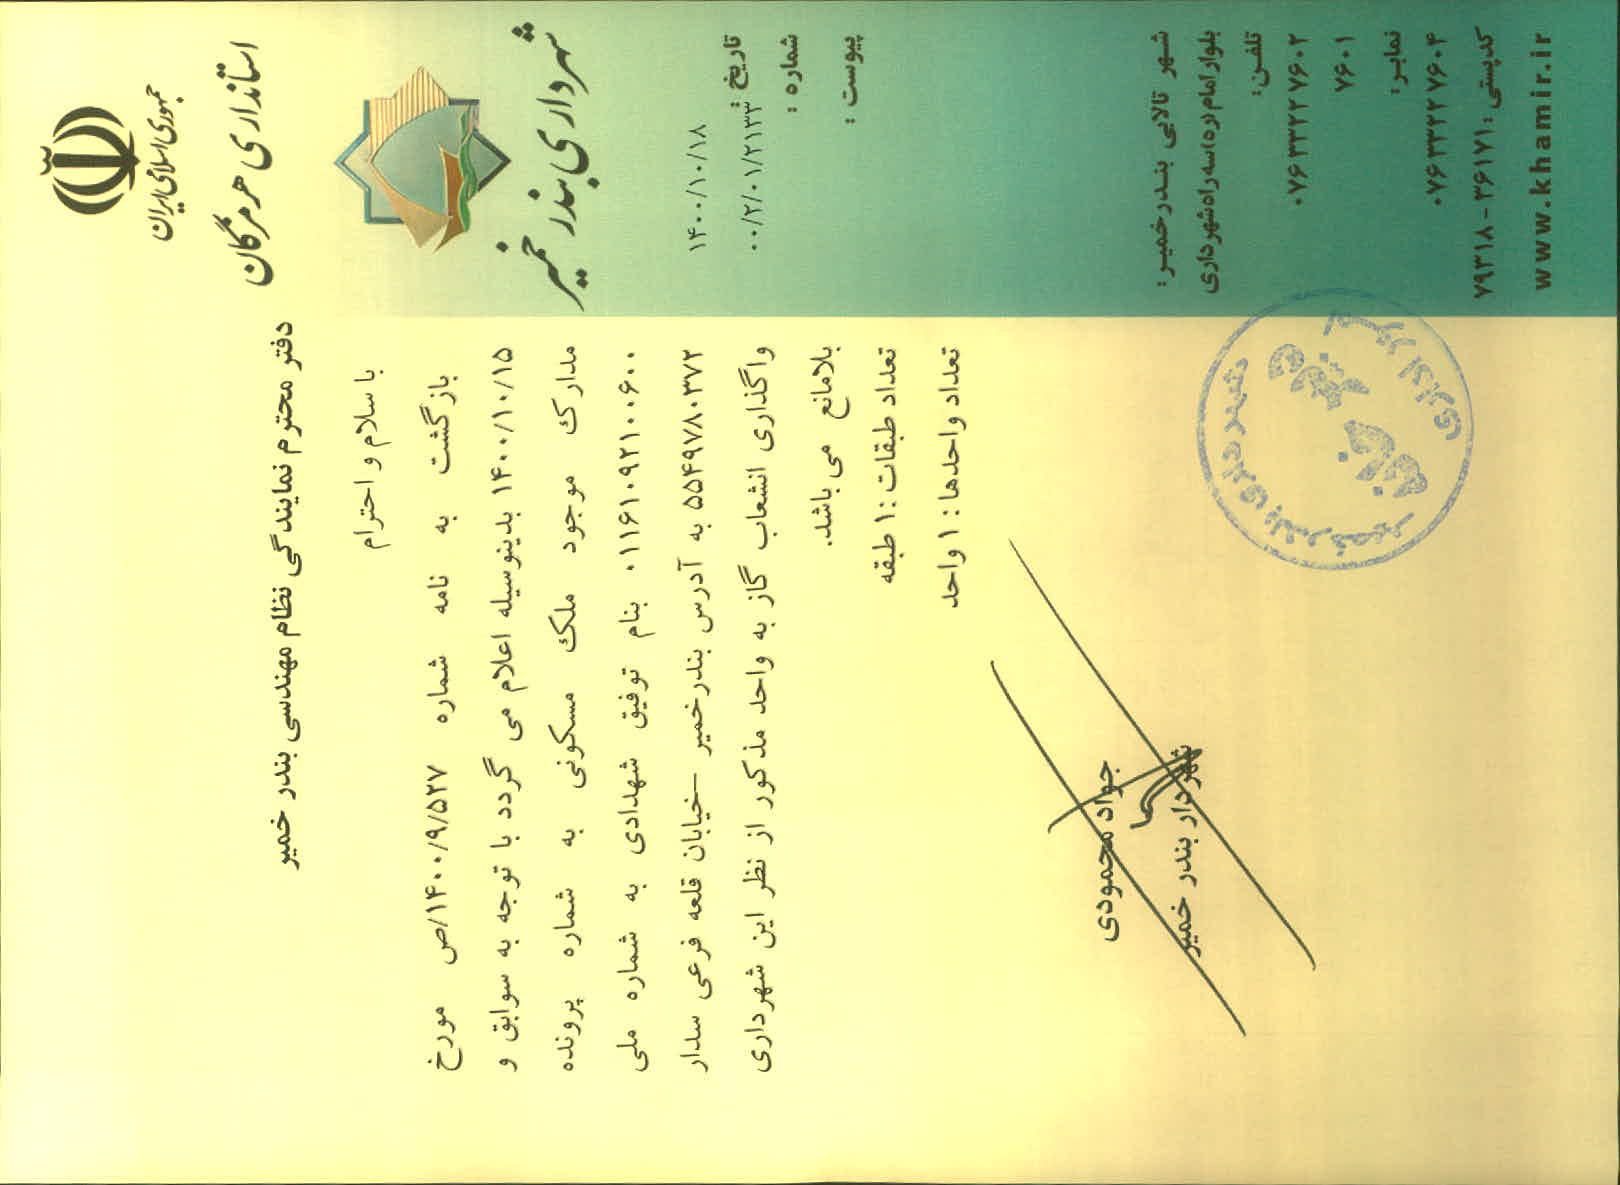 جمهوری اسلامی ایران
استانداری هرمزگان
شهرداری بندر خمیر
تاریخ : ۱۴۰۰/۱۰/۱۸
شماره : ۰۰/۲/۰۱/۲۱۳۳
پیوست :
دفتر محترم نمایندگی نظام مهندسی بندر خمیر
با سلام و احترام
بازگشت به نامه شماره ۱۴۰۰/۹/۵۲۷/ص مورخ
۱۴۰۰/۱۰/۱۵ بدینوسیله اعلام می گردد با توجه به سوابق و
مدارک موجود ملک مسکونی به شماره پرونده
۰۱۱۶۱۰۹۲۱۰۰۶۰۰ بنام توفیق شهدادی به شماره ملی
۵۵۴۹۷۸۰۳۷۲ به آدرس بندرخمیر –خیابان قلعه فرعی سدار
واگذاری انشعاب گاز به واحد مذکور از نظر این شهرداری
بلامانع می باشد.
تعداد طبقات :۱ طبقه
تعداد واحدها : ۱ واحد
جواد محمودی
شهردار بندر خمیر
شهرداری بندر خمیر
امور اداری
شهر تالابی بندرخمیر:
بلوار امام(ره)سه راه شهرداری
تلفن:
۰۷۶۳۳۲۲۷۶۰۲
۷۶۰۱
نمابر:
۰۷۶۳۳۲۲۷۶۰۴
کدپستی :۳۶۱۷۱-۷۹۳۱۸
www.khamir.ir